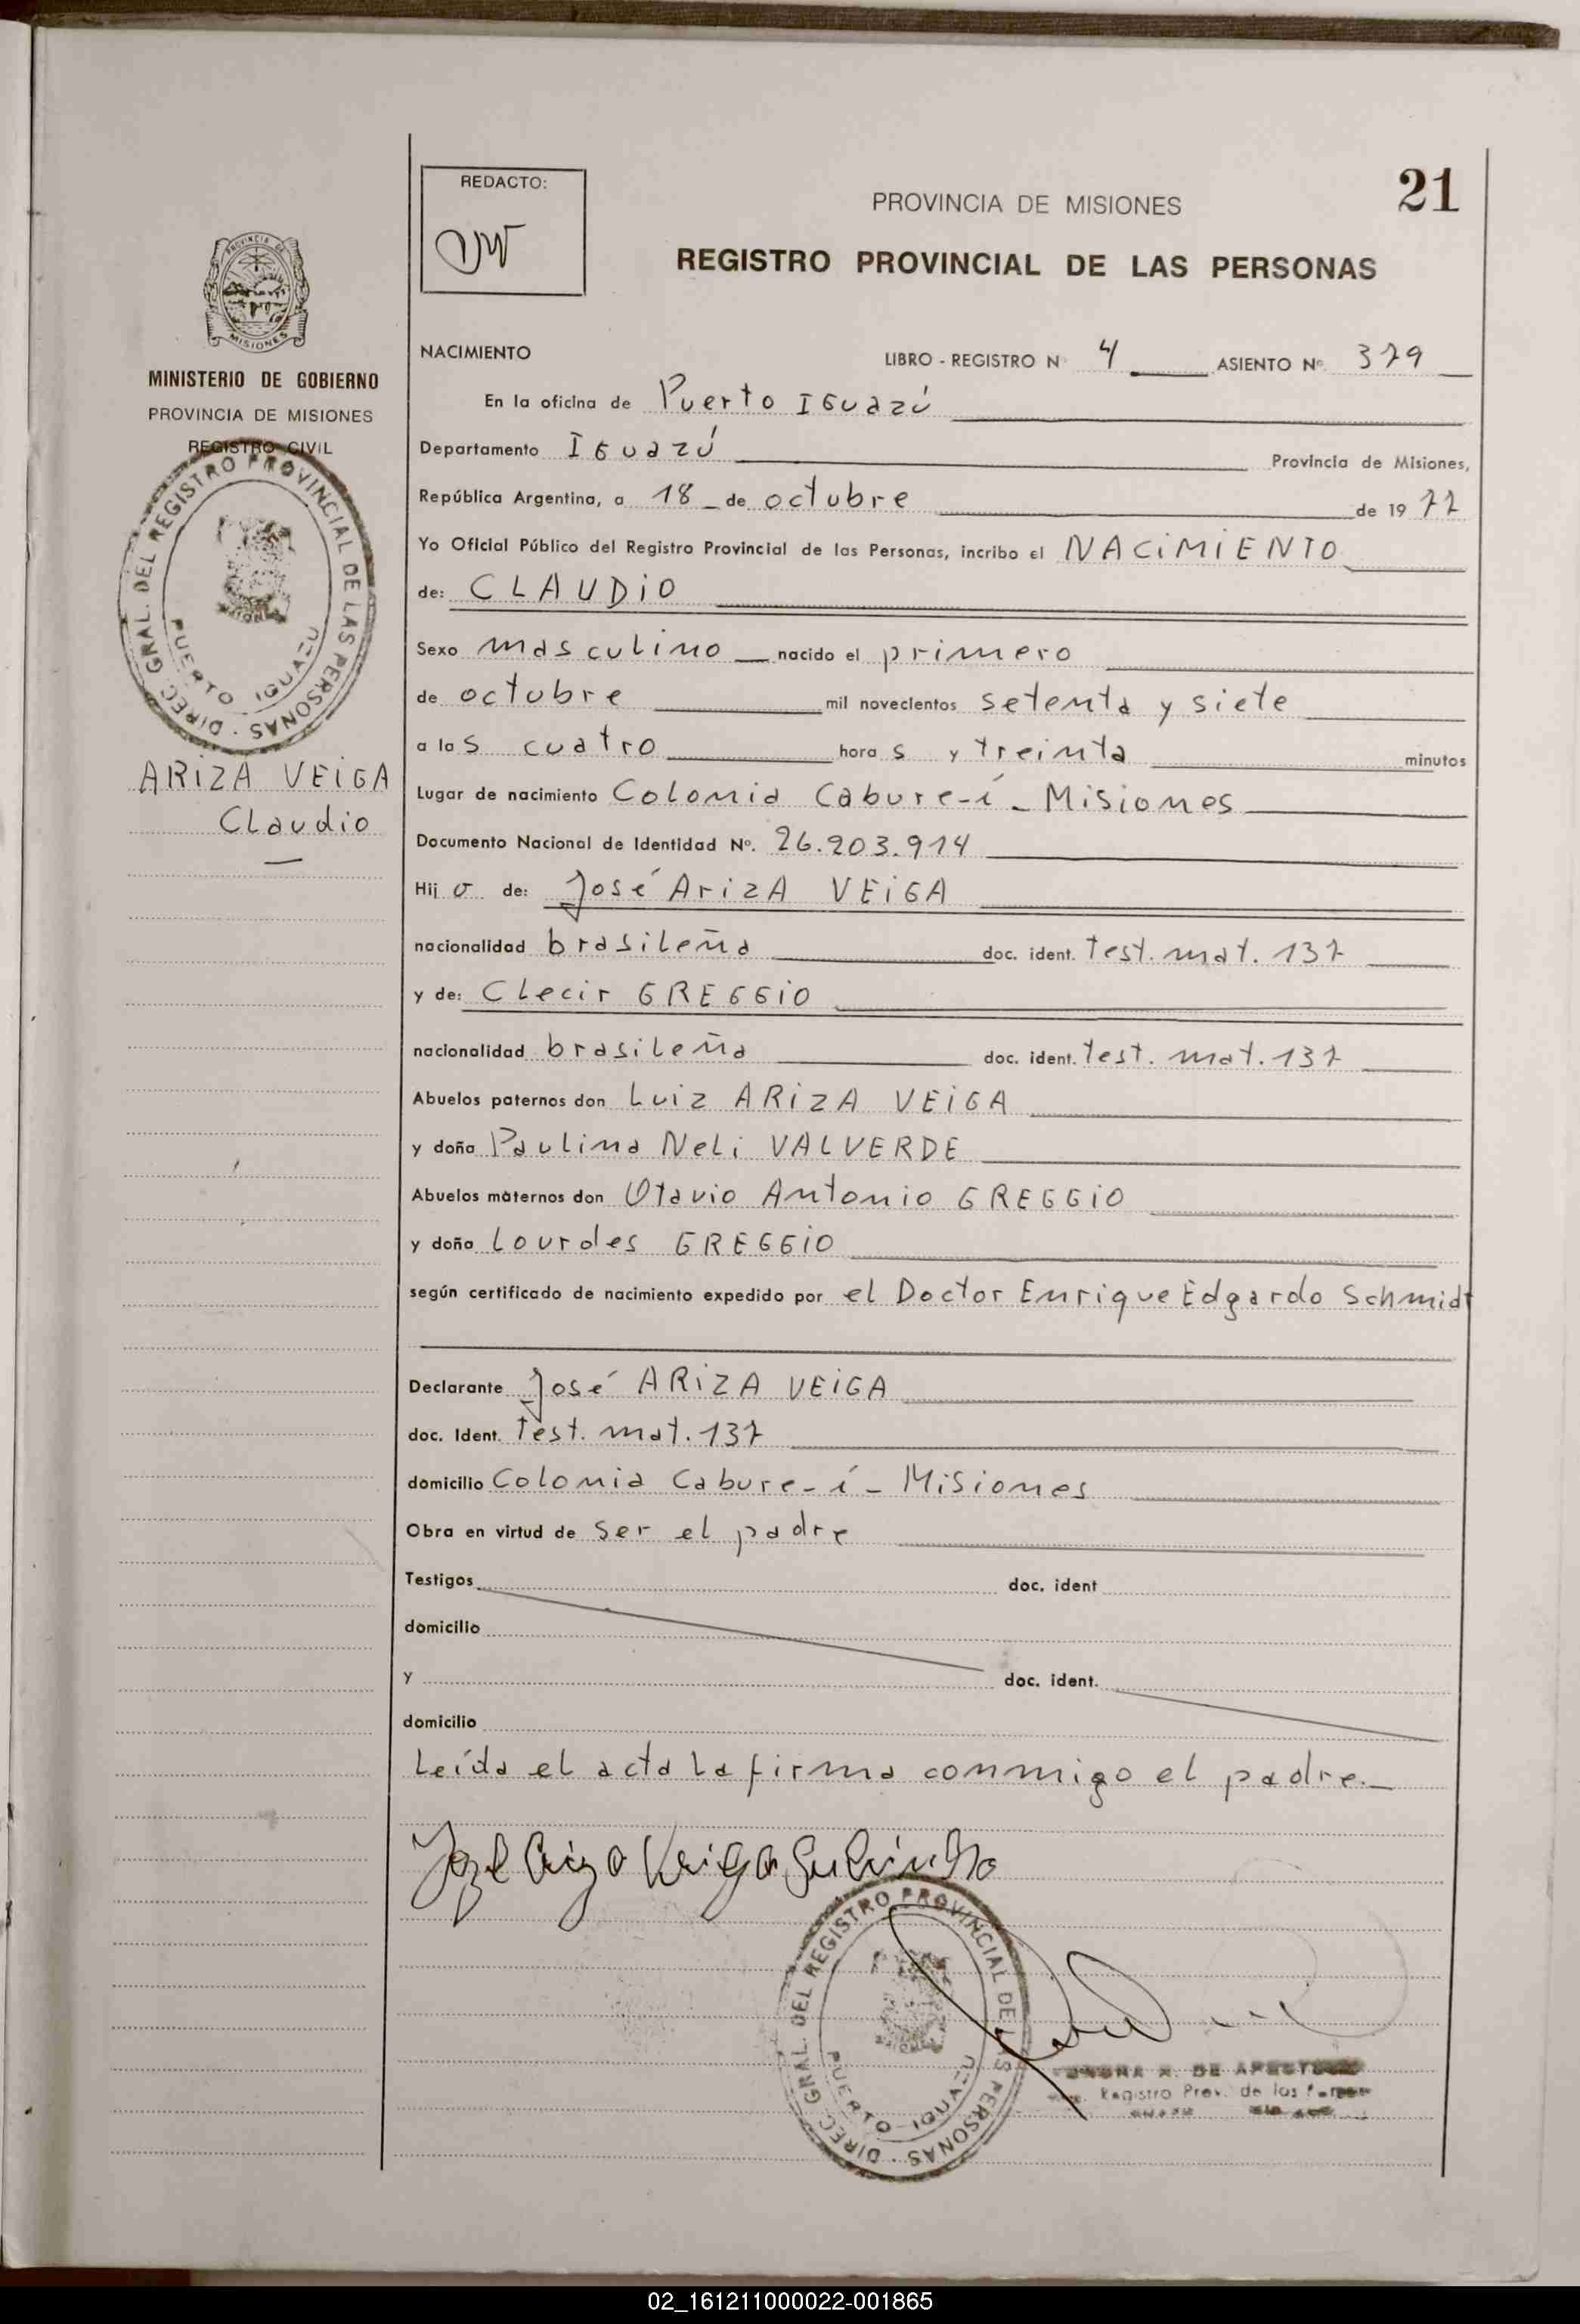 REDACTO:
PROVINCIA DE MISIONES
21
REGISTRO PROVINCIAL DE LAS PERSONAS
PROVINCIA DE
MISIONES
MINISTERIO DE GOBIERNO
PROVINCIA DE MISIONES
REGISTRO CIVIL
DIREC. GRAL. DEL REGISTRO PROVINCIAL DE LAS PERSONAS
PUERTO IGUAZU
ARIZA VEIGA
Claudio
NACIMIENTO LIBRO - REGISTRO Nº 4 ASIENTO Nº 379
En la oficina de Puerto IGuazú
Departamento IGuazú Provincia de Misiones,
República Argentina, a 18 de octubre de 1977
Yo Oficial Público del Registro Provincial de las Personas, incribo el NACIMIENTO
de: CLAUDIO
Sexo masculino nacido el primero
de octubre mil novecientos setenta y siete
a las cuatro horas y treinta minutos
Lugar de nacimiento Colonia Cabure-í - Misiones
Documento Nacional de Identidad Nº. 26.203.914
Hijo de: José ArizA VEIGA
nacionalidad brasileña doc. ident. test. mat. 137
y de: Clecir GREGGIO
nacionalidad brasileña doc. ident. test. mat. 137
Abuelos paternos don Luiz ARIZA VEIGA
y doña Paulina Neli VALVERDE
Abuelos maternos don Otavio Antonio GREGGIO
y doña Lourdes GREGGIO
según certificado de nacimiento expedido por el Doctor Enrique Edgardo Schmidt
Declarante José ARIZA VEIGA
doc. Ident. test. mat. 137
domicilio Colonia Cabure-í - Misiones
Obra en virtud de ser el padre
Testigos doc. ident
domicilio
y doc. ident.
domicilio
Leída el acta la firma conmigo el padre.-
DIREC. GRAL. DEL REGISTRO PROVINCIAL DE LAS PERSONAS
PUERTO IGUAZU
Registro Prov. de las
02_161211000022-001865